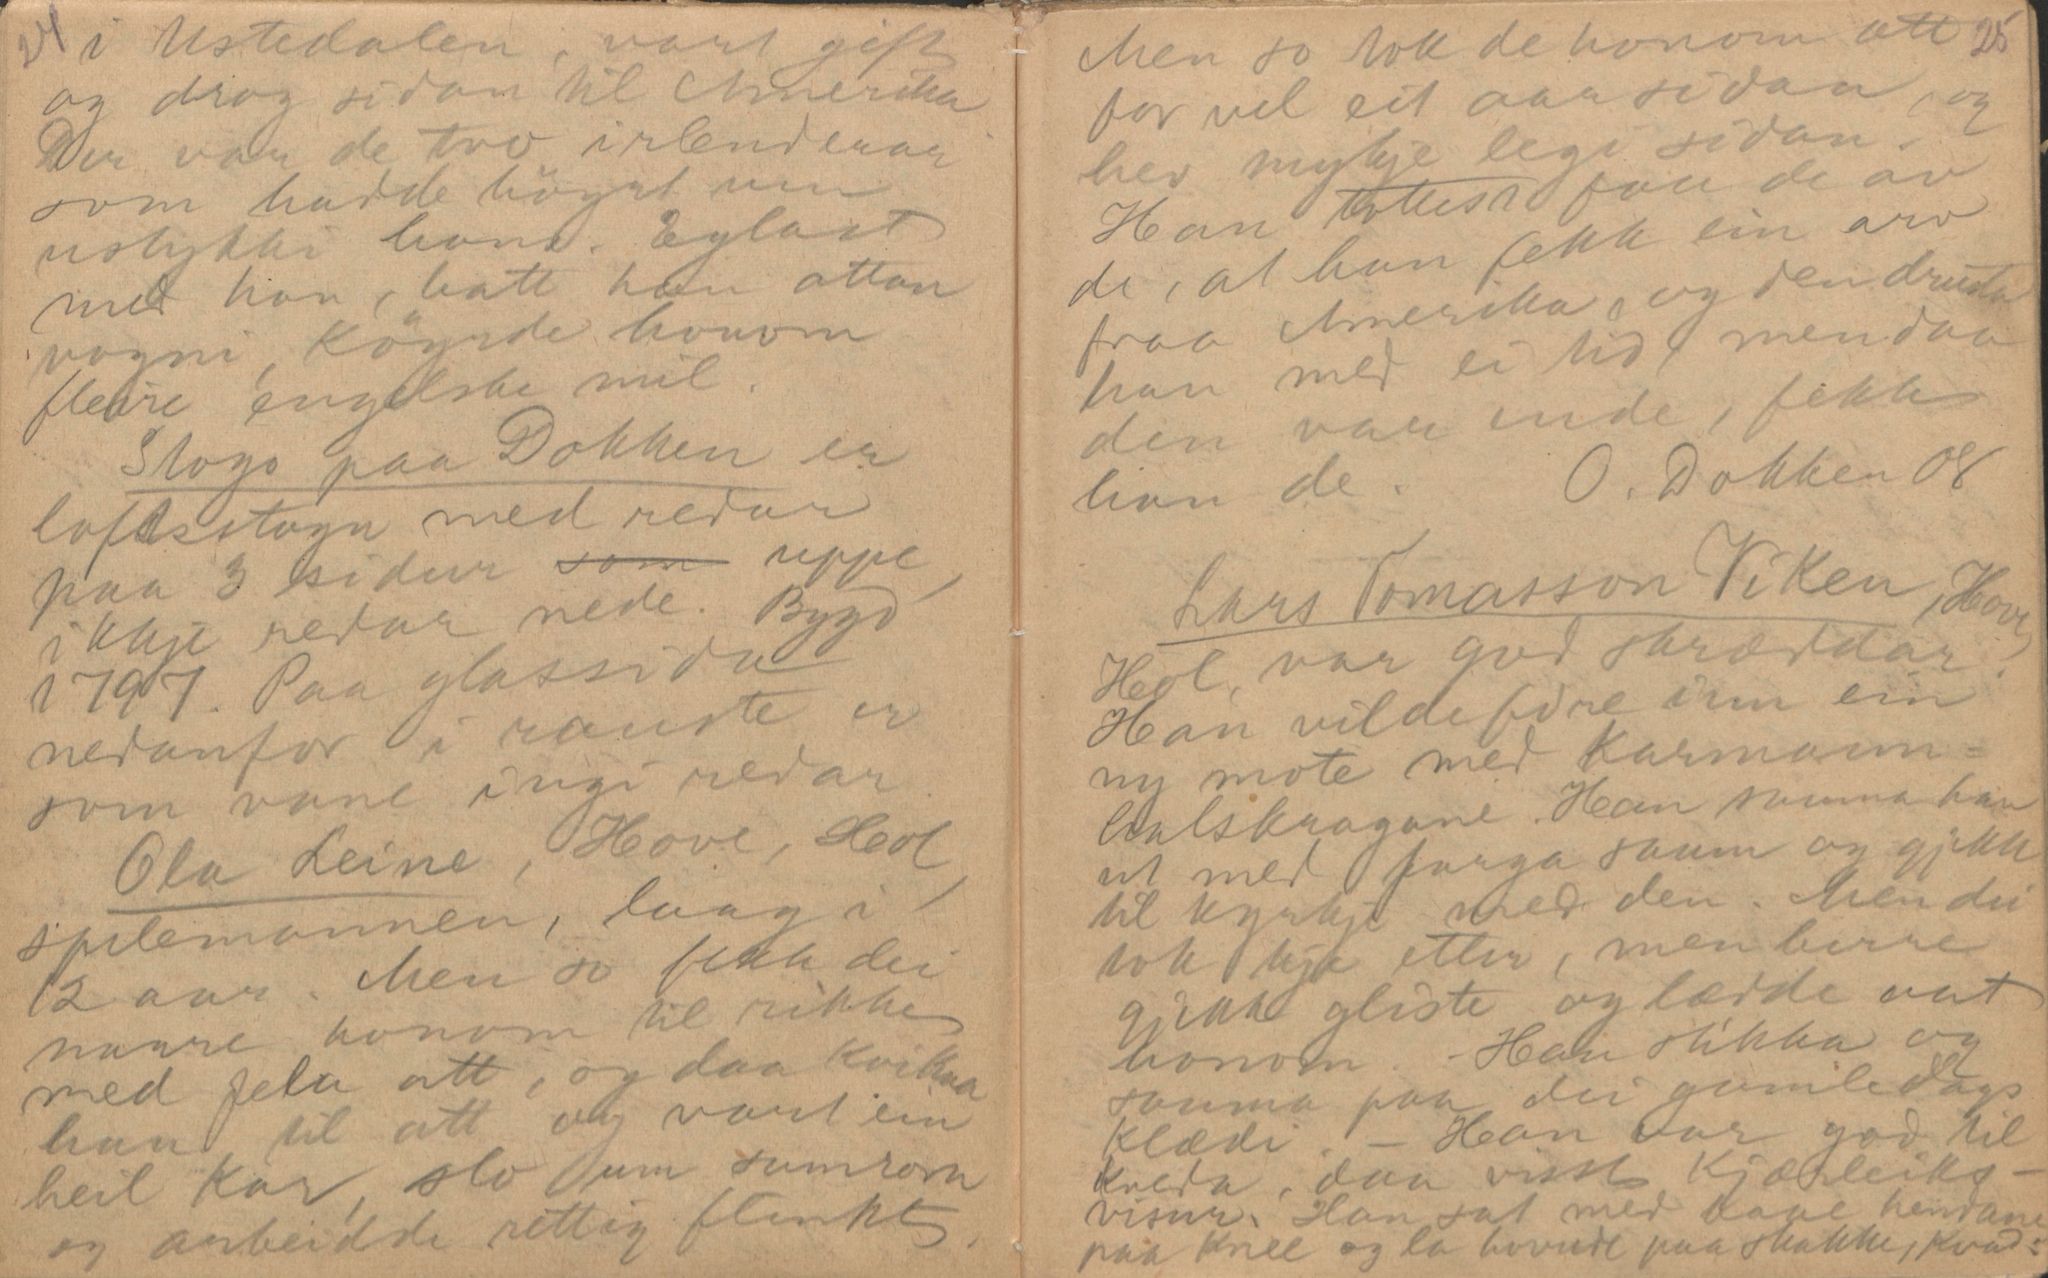 24
i Ustedalen, vart gift
og drog sidan til Amerika
Der var de tvo irlendarar
som hadde høyrt um
ustykkji hans. Eglast
med han, batt han attan
vogni, Köyrde honom
fleire engelske mil.
Stogo paa Dokken er
loftsstogu med redar
paa 3 sidur uppe,
ikkje redar nede. Bygd
1797. Paa glassida
nedanfor i rauste er
som vane ingi redar.
Ola Leine, Hove, Hol,
spelemannen, laag i
12 aar. Men so fekk dei
narre honom til rikke
med fela att, og daa kvikna
han til att og vart ein
heil Kar, slo um sumrom
og arbeidde rettig flinkt.
25
Men so tok de honom att
for vel eit aar sidan, og
hev mykje legi sidan.
Han tottest faa de av
di, at han fekk ein arv
fraa Amerika, og den
han med ei tid, men daa
den var ende, fekk
han de. O. Dokken 08
Lars Tomasson Viken, Hove,
Hol, var god skræddar.
Han vilde føre inn ein
ny mote med Karmann-
halskragane. Han sauma han
ut med farga saum og gjekk
til kyrkje med den. Men dei
tok kje etter, men berre
gjekk gliste og lædde aat
honom. - Han stikka og
sauma paa dei gamledags
Klædi. - Han var god til
kveda, daa visst Kjærleiks-
visur. Han sat med baae hendane
paa Knee og la hovude paa skakke, kvad-